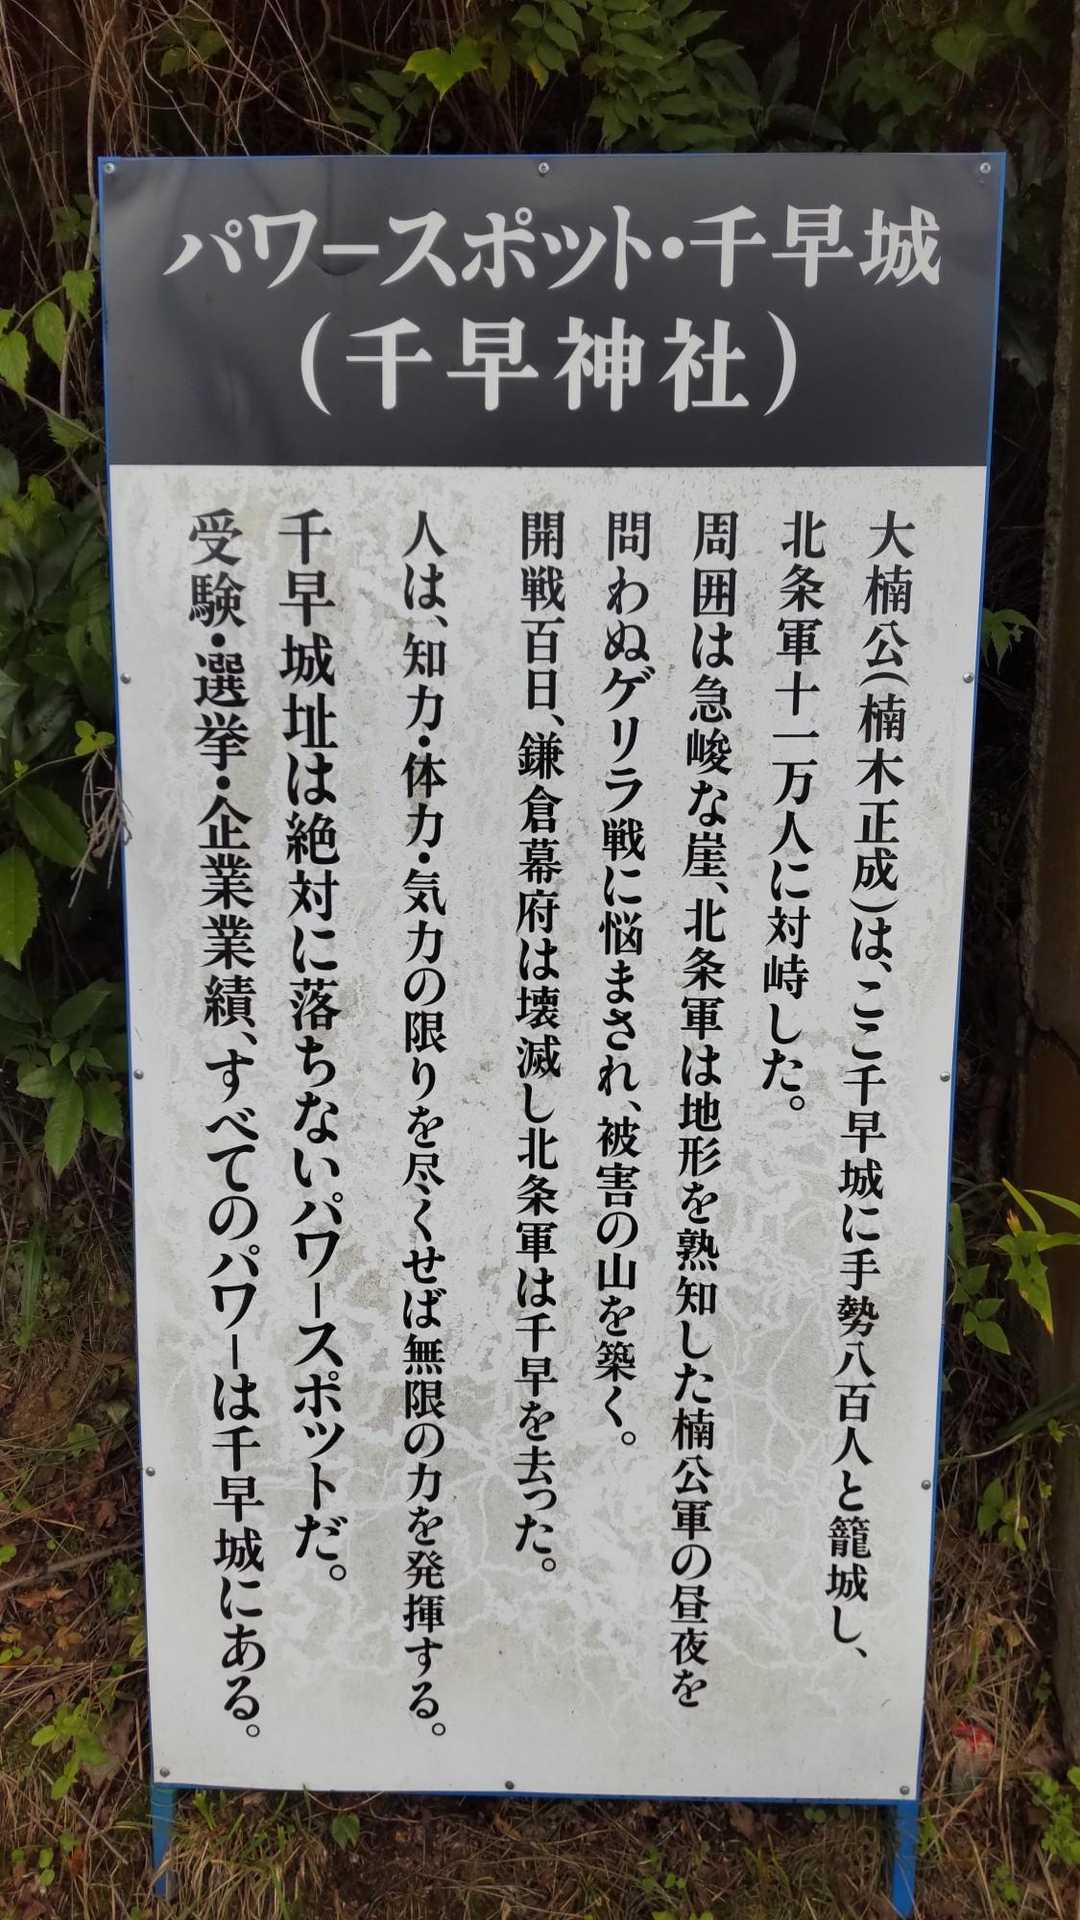 パワースポット・千早城
(千早神社)
大楠公(楠木正成)は、ここ千早城に手勢八百人と籠城し、
北条軍十一万人に対峙した。
周囲は急峻な崖、北条軍は地形を熟知した楠公軍の昼夜を
問わぬゲリラ戦に悩まされ、被害の山を築く。
開戦百日、鎌倉幕府は壊滅し北条軍は千早を去った。
人は、知力・体力・気力の限りを尽くせば無限の力を発揮する。
千早城址は絶対に落ちないパワースポットだ。
受験・選挙・企業業績、すべてのパワーは千早城にある。